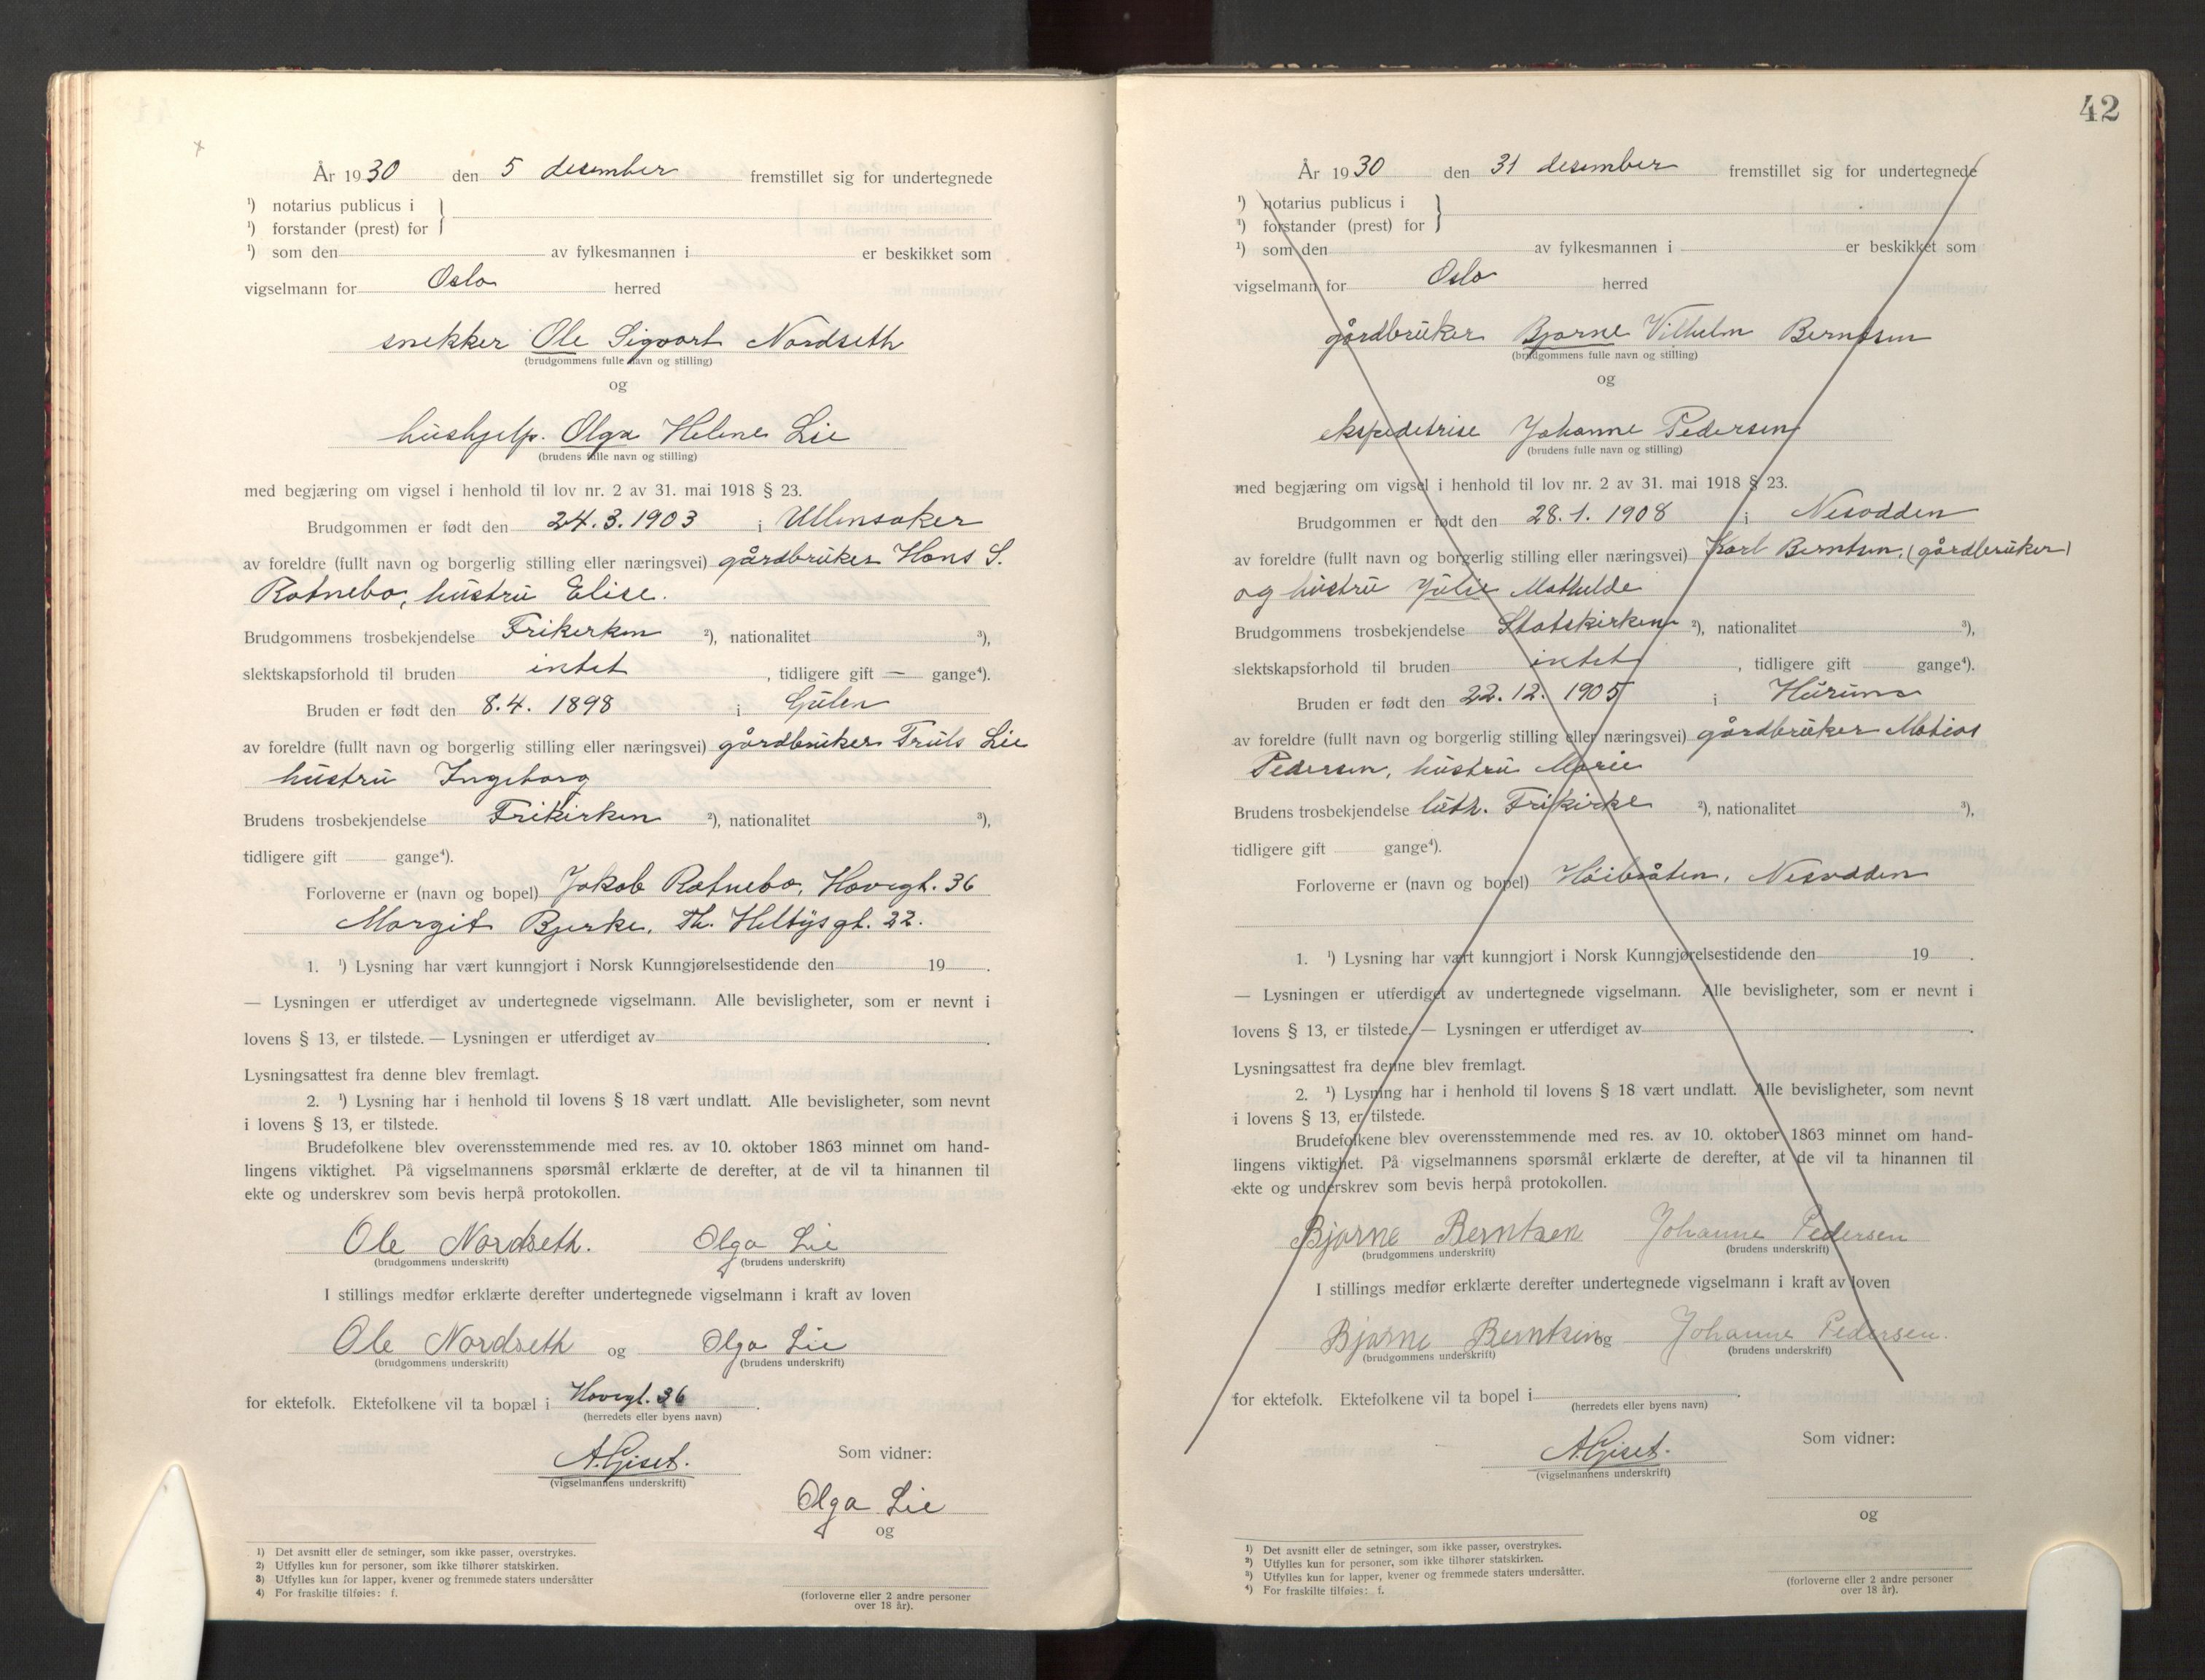 År 1930 den 5 desember fremstillet sig for undertegnede
¹) notarius publicus i }
¹) forstander (prest) for }
¹) som den av fylkesmannen i er beskikket som
vigselmann for Oslo herred
snekker Ole Sigvart Nordseth
(brudgommens fulle navn og stilling)
og
hushjelp. Olga Helene Lie
(brudens fulle navn og stilling)
med begjæring om vigsel i henhold til lov nr. 2 av 31. mai 1918 § 23.
Brudgommen er født den 24.3.1903 i Ullensaker
av foreldre (fullt navn og borgerlig stilling eller næringsvei) gårdbruker Hans S.
Ratnebo, hustru Elise.
Brudgommens trosbekjendelse Frikerken ²), nationalitet ³),
slektskapsforhold til bruden intet, tidligere gift — gange⁴).
Bruden er født den 8.4. 1898 i Gulen
av foreldre (fullt navn og borgerlig stilling eller næringsvei) gårdbruker Truls Lie
hustru Ingeborg
Brudens trosbekjendelse Frikirken ²), nationalitet ³),
tidligere gift gange⁴).
Forloverne er (navn og bopel) Jakob Ratnebo, Hovegt. 36
Margit Bjerke, Th. Heltýsgt. 22.
1. ¹) Lysning har vært kunngjort i Norsk Kunngjørelsestidende den 19 .
— Lysningen er utferdiget av undertegnede vigselmann. Alle bevisligheter, som er nevnt i
lovens § 13, er tilstede. — Lysningen er utferdiget av .
Lysningsattest fra denne blev fremlagt.
2. ¹) Lysning har i henhold til lovens § 18 vært undlatt. Alle bevisligheter, som nevnt
i lovens § 13, er tilstede.
Brudefolkene blev overensstemmende med res. av 10. oktober 1863 minnet om hand-
lingens viktighet. På vigselmannens spørsmål erklærte de derefter, at de vil ta hinannen til
ekte og underskrev som bevis herpå protokollen.
Ole Nordseth. Olga Lie
(brudgommens underskrift) (brudens underskrift)
I stillings medfør erklærte derefter undertegnede vigselmann i kraft av loven
Ole Nordseth og Olga Lie
(brudgommens underskrift) (brudens underskrift)
for ektefolk. Ektefolkene vil ta bopæl i Hovegt. 36 .
(herredets eller byens navn)
A. Giset.
(vigselmannens underskrift)
Som vidner:
Olga Lie
og
(forloverne eller 2 andre personer
over 18 år).
1) Det avsnitt eller de setninger, som ikke passer, overstrykes.
2) Utfylles kun for personer, som ikke tilhører statskirken.
3) Utfylles kun for lapper, kvener og fremmede staters undersåtter
4) For fraskilte tilføies: f.
42
År 1930 den 31 desember fremstillet sig for undertegnede
¹) notarius publicus i }
¹) forstander (prest) for }
¹) som den av fylkesmannen i er beskikket som
vigselmann for Oslo herred
gårdbruker Bjarne Vilhelm Berntsen
(brudgommens fulle navn og stilling)
og
ekspedetrise Johanne Pedersen
(brudens fulle navn og stilling)
med begjæring om vigsel i henhold til lov nr. 2 av 31. mai 1918 § 23.
Brudgommen er født den 28.1. 1908 i Nesodden
av foreldre (fullt navn og borgerlig stilling eller næringsvei) Karl Berntsen, (gårdbruker)
og hustru Julie Mathilde
Brudgommens trosbekjendelse Statskirken ²), nationalitet ³),
slektskapsforhold til bruden intet, tidligere gift gange⁴).
Bruden er født den 22.12. 1905 i Hurum
av foreldre (fullt navn og borgerlig stilling eller næringsvei) gårdbruker Matias
Pedersen, hustru Marie
Brudens trosbekjendelse luth. Frikirke ²), nationalitet ³),
tidligere gift gange⁴).
Forloverne er (navn og bopel) Høibråten, Nesodden
1. ¹) Lysning har vært kunngjort i Norsk Kunngjørelsestidende den 19 .
— Lysningen er utferdiget av undertegnede vigselmann. Alle bevisligheter, som er nevnt i
lovens § 13, er tilstede. — Lysningen er utferdiget av .
Lysningsattest fra denne blev fremlagt.
2. ¹) Lysning har i henhold til lovens § 18 vært undlatt. Alle bevisligheter, som nevnt
i lovens § 13, er tilstede.
Brudefolkene blev overensstemmende med res. av 10. oktober 1863 minnet om hand-
lingens viktighet. På vigselmannens spørsmål erklærte de derefter, at de vil ta hinannen til
ekte og underskrev som bevis herpå protokollen.
Bjarne Berntsen Johanne Pedersen
(brudgommens underskrift) (brudens underskrift)
I stillings medfør erklærte derefter undertegnede vigselmann i kraft av loven
Bjarne Berntsen og Johanne Pedersen.
(brudgommens underskrift) (brudens underskrift)
for ektefolk. Ektefolkene vil ta bopel i .
(herredets eller byens navn)
A. Giset.
(vigselmannens underskrift)
Som vidner:
og
(forloverne eller 2 andre personer
over 18 år).
¹) Det avsnitt eller de setninger, som ikke passer, overstrykes.
²) Utfylles kun for personer, som ikke tilhører statskirken.
³) Utfylles kun for lapper, kvener og fremmede staters undersåtter.
⁴) For fraskilte tilføies: f.